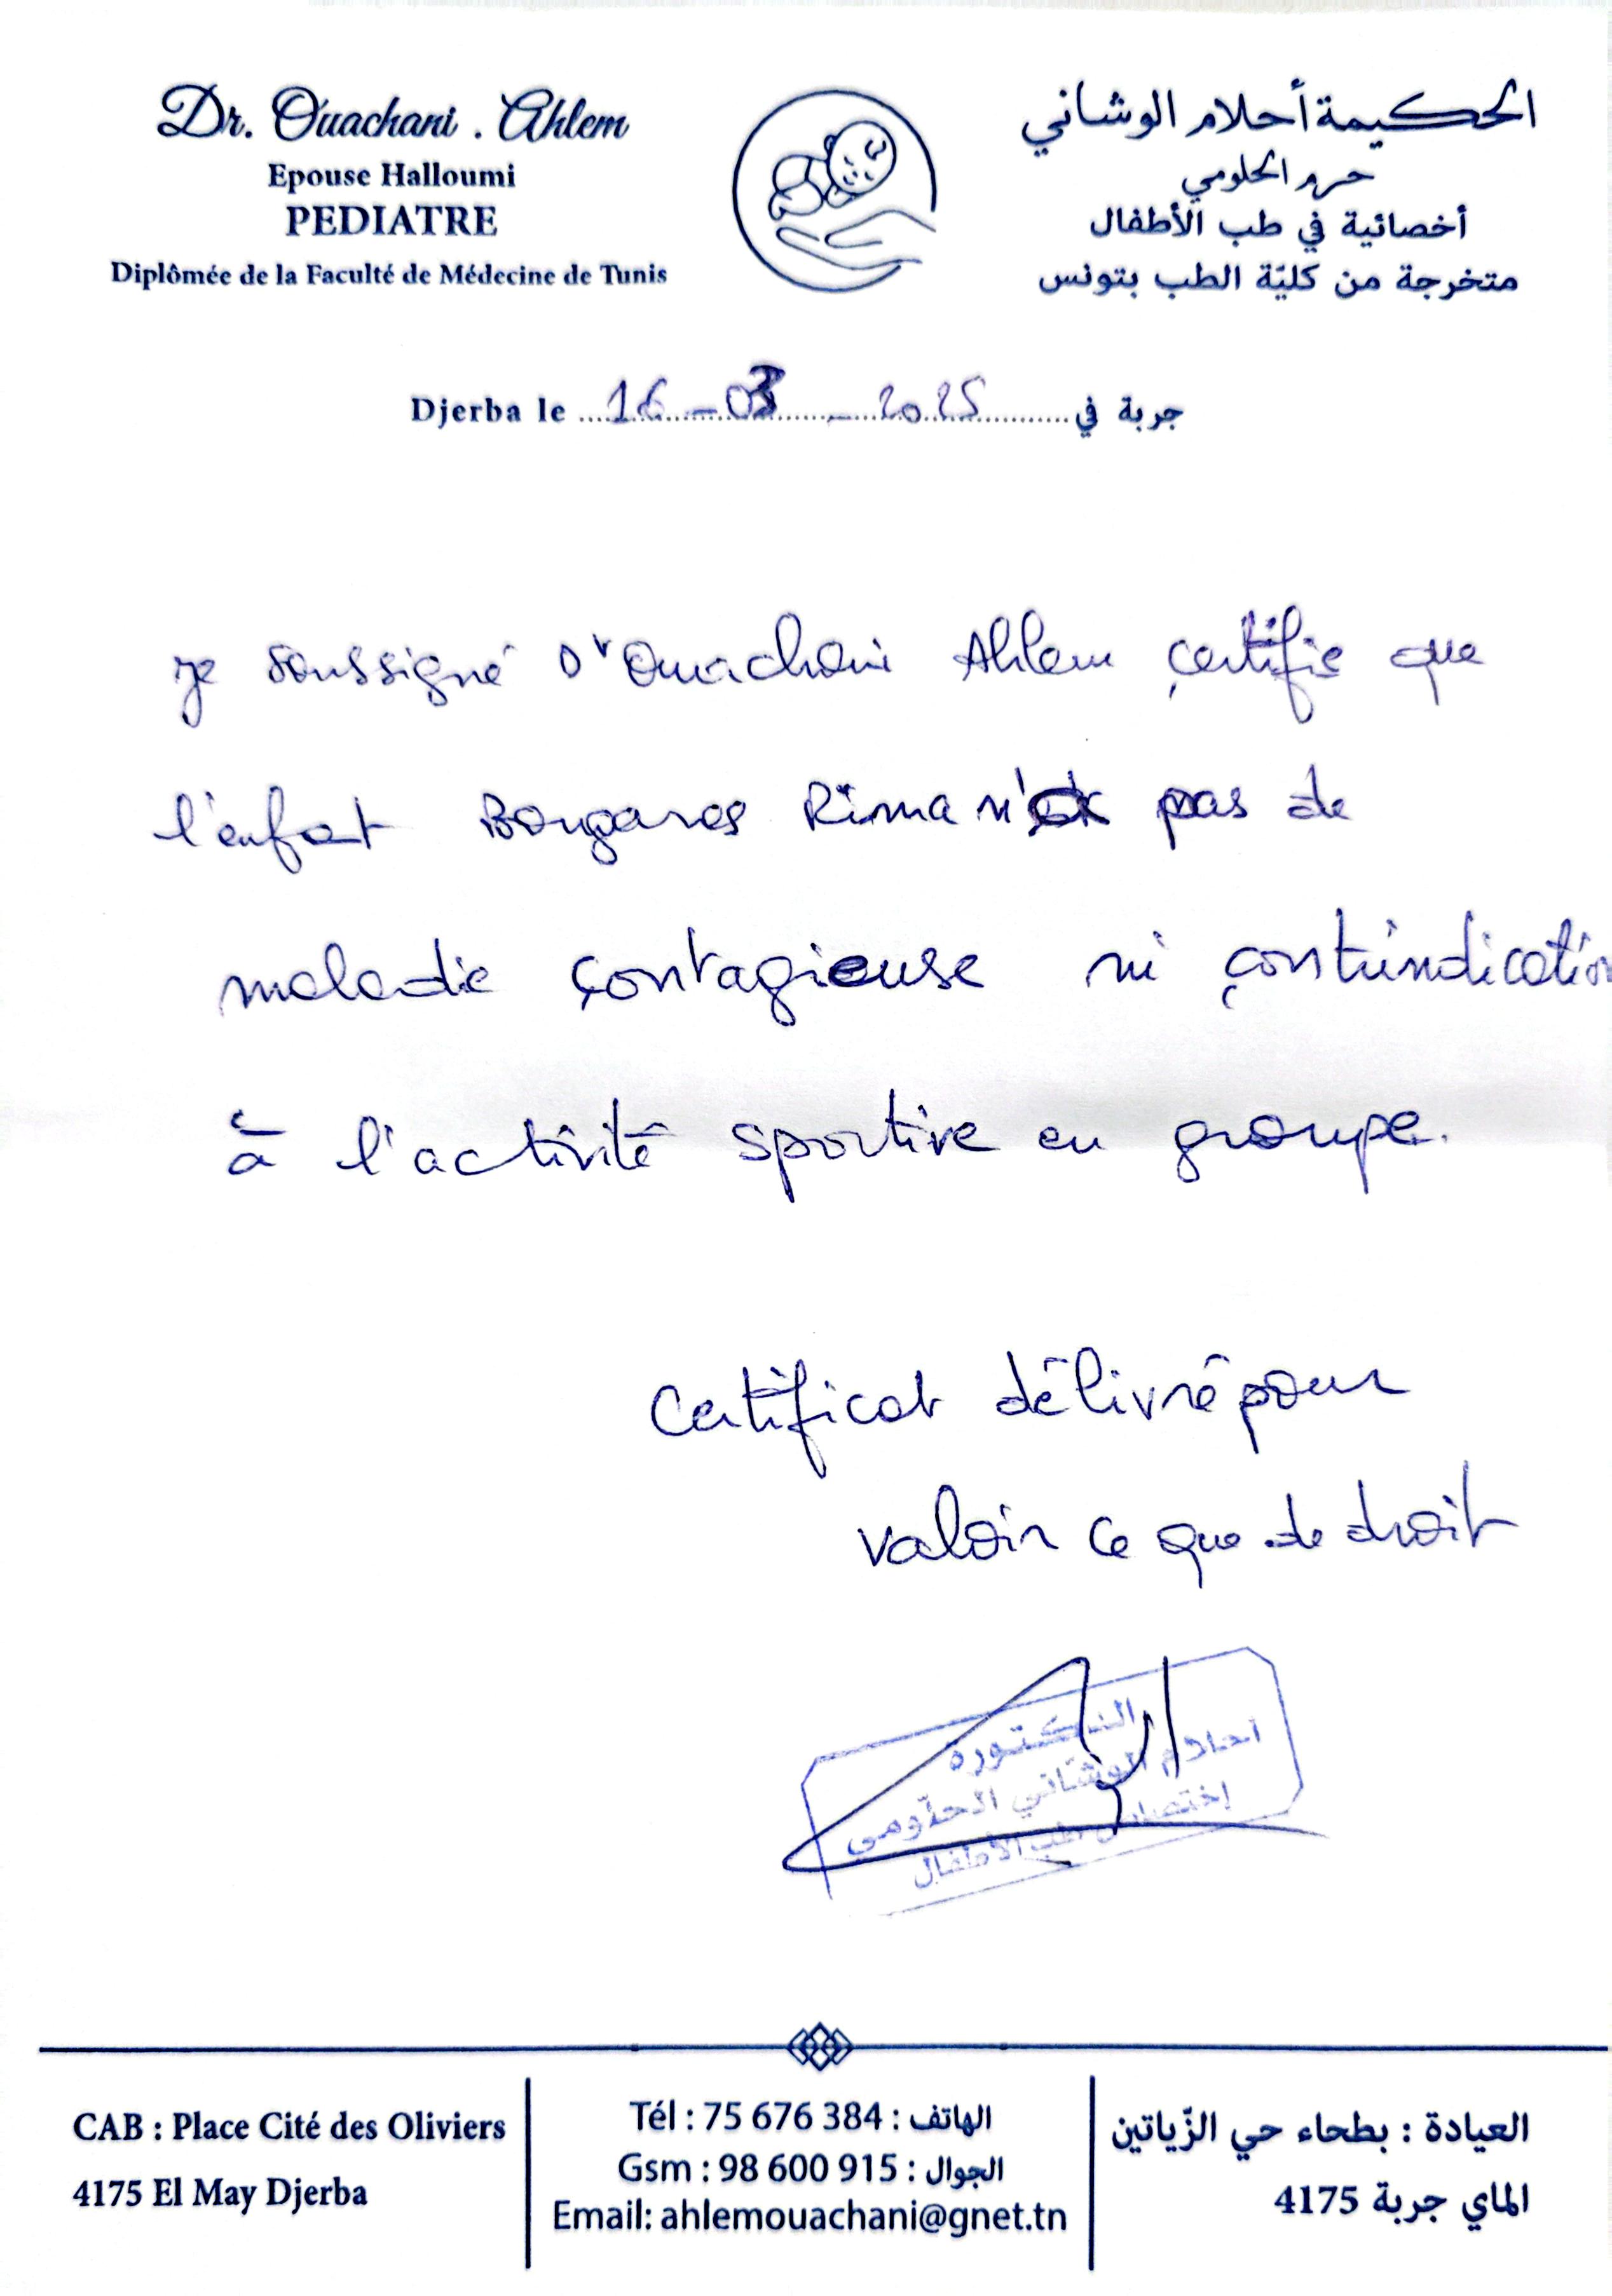 Dr. Ouachani . Ahlem
Epouse Halloumi
PEDIATRE
Diplômée de la Faculté de Médecine de Tunis
الحكيمة أحلام الوشاني
حرم الحلومي
أخصائية في طب الأطفال
متخرجة من كليّة الطب بتونس
Djerba le 16-03-2025 جربة في
je soussigné Dr Ouachani Ahlem certifie que
l'enfant Bougares Rima n'a pas de
maladie contagieuse ni contrindication
à l'activité sportive en groupe.
Certificat délivré pour
valoir ce que de droit
الدكتورة
أحلام الوشاني الحلّومي
إختصاص طب الأطفال
CAB : Place Cité des Oliviers
4175 El May Djerba
Tél : 75 676 384 : الهاتف
Gsm : 98 600 915 : الجوال
Email: ahlemouachani@gnet.tn
العيادة : بطحاء حي الزّياتين
الماي جربة 4175